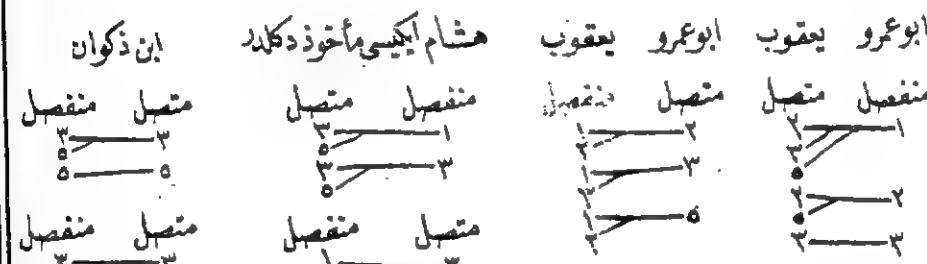 ابوعمرو يعقوب ابوعمرو يعقوب هشام ايكيسى مأخوذ دكلدر ابن ذكوان
منفصل متصل متصل منفصل منفصل متصل متصل منفصل
١ ٢ ٢ ١ ١ ٣ ٣ ٣
٣ ٢ ٥ ٥
٥ ٣ ١ ٣ ٣ ٥ ٥
٢ ٢ ٣ ٥
٥ ٥ ١
٣ ٣ ٢
منفصل متصل متصل منفصل
٣ ١ ٣ ٣